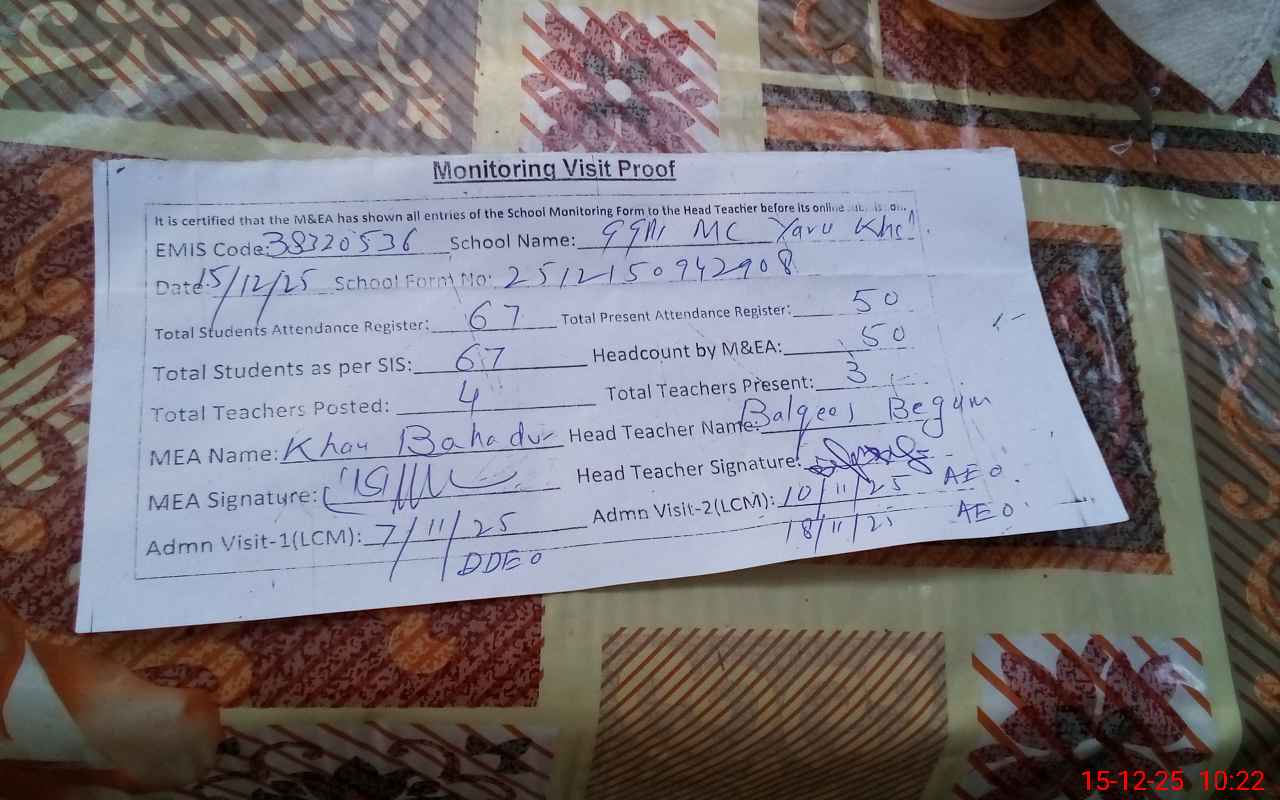 Monitoring Visit Proof
It is certified that the M&EA has shown all entries of the School Monitoring Form to the Head Teacher before its online
EMIS Code: 38320536 School Name: MC Yaru
Date: 15/12/25 School Form No: 25121509 42908
Total Students Attendance Register: 67 Total Present Attendance Register: 50
Total Students as per SIS: 67 Headcount by M&EA: 50
Total Teachers Posted: 4 Total Teachers Present: 3
MEA Name: Khan Bahadur Head Teacher Name: Balqees Begum
MEA Signature: Head Teacher Signature:
Admn Visit-1(LCM): 7/11/25 Admn Visit-2(LCM): 10/11/25 AEO
DDEO 18/11/25 AEO
15-12-25 10:22